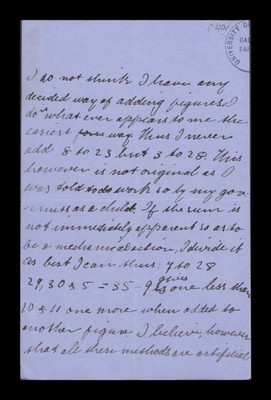 C401
UNIVERSITY
I do not think I have any
decided way of adding figures. I
do what ever appears to me the
easiest way. Thus I never
add 8 to 23 but 3 to 28. This
however is not original as I
was told to do work so by my gov-
erness as a child. If the sum is
not immediately apparent so as to
be a mechanical action, I divide it
as best I can thus: 7 to 28
29, 30 & 5 = 35 - 9 gives one less than
10 & 11 one more when added to
another figure. I believe, however
that all these methods are artificial